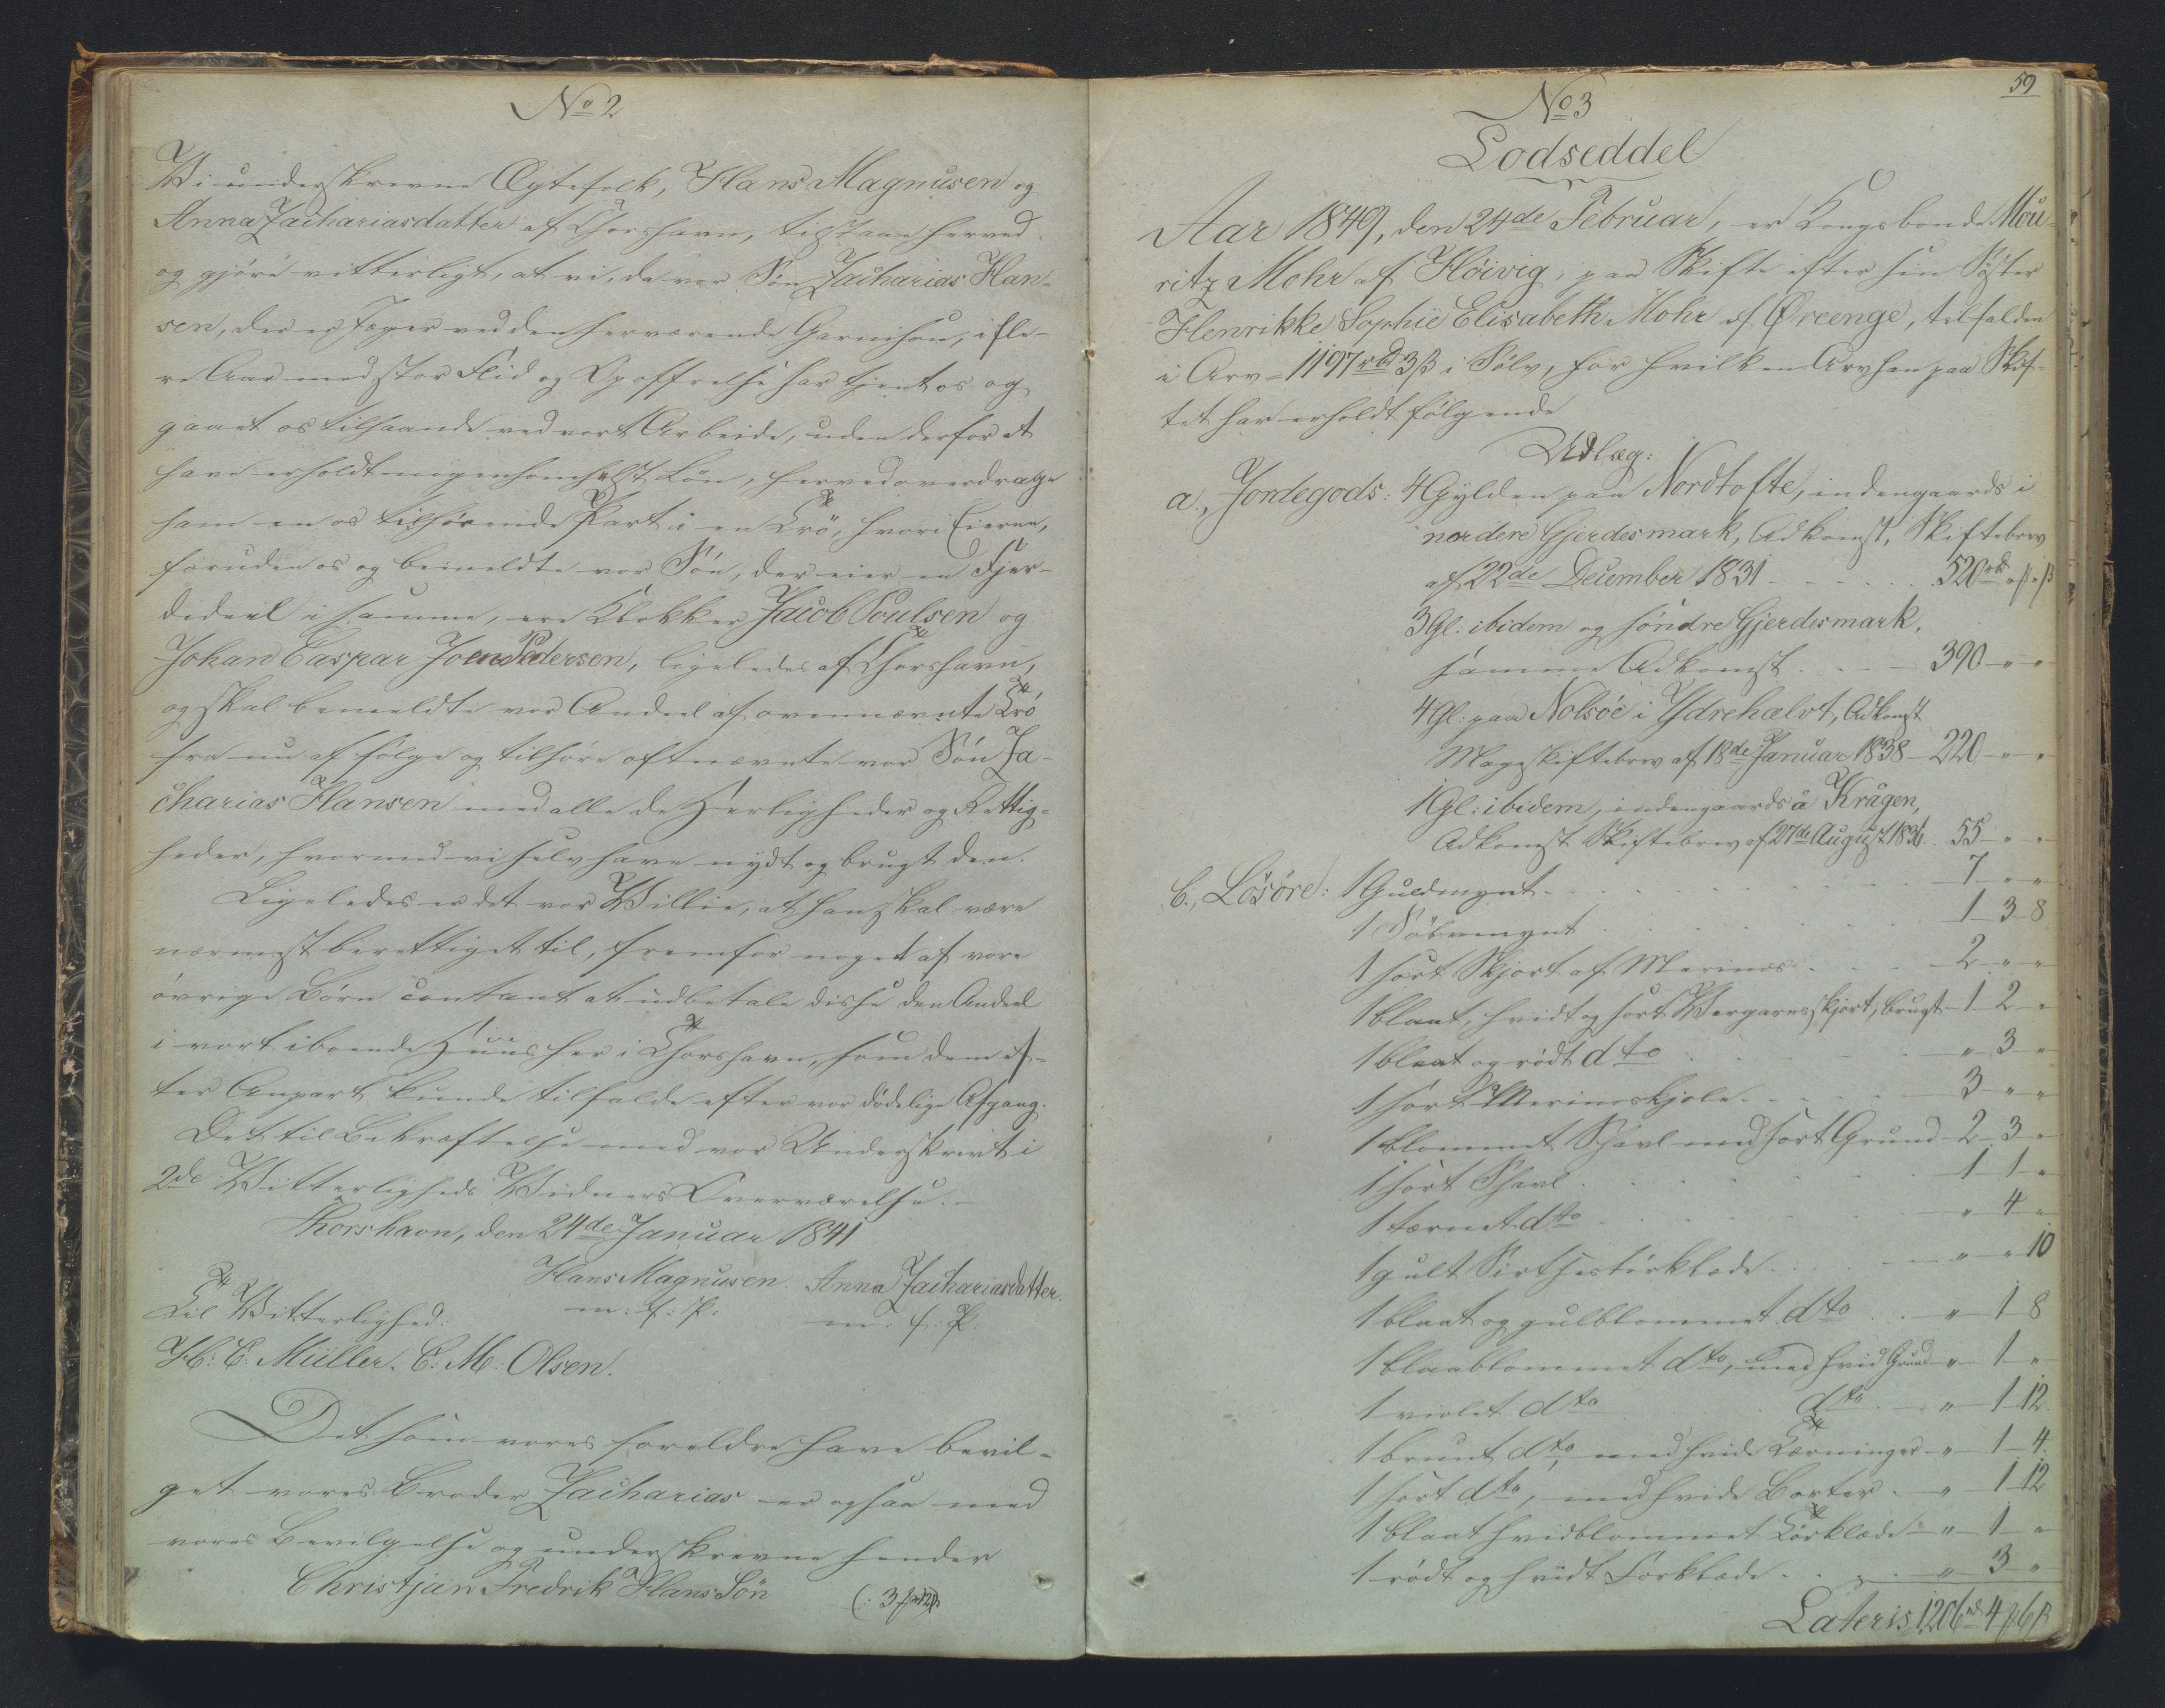 No 2
Wi underskrevne Ægtefolk, Hans Magnusen og
Anna Zachariasdatter af Thorshavn, tilstaae herved
og gjøre vitterligt, at vi, da vor Søn Zacharias Han-
sen, der er Jæger ved den herværende Garnison, i fle-
re Aar med stor Flid og Opoffrelse har tjent os og
gaaet os tilhaande ved vort Arbeide, uden derfor at
have erholdt nogensomhelst Løn, herved overdrage
ham en os tilhørende Part i en Trø, hvori Eierne,
foruden os og bemeldte vor Søn, der eier en Fjer-
dedeel i samme, ere Klokker Jacob Poulsen og
Johan Caspar Joen Pedersen, ligeledes af Thorshavn,
og skal bemeldte vor Andeel af ovennævnte Trø
fra nu af følge og tilhøre oftnævnte vor Søn Za-
charias Hansen med alle de Herligheder og Rettig-
heder, hvormed vi selv have nydt og brugt den.
Ligeledes er det vor Willie, at han skal være
nærmest berettiget til, fremfor noget af vore
øvrige Børn contant at udbetale disse den Andeel
i vort iboende Huus her i Thorshavn, som dem ef-
ter Anpart kunde tilfalde efter vor dødelige Afgang.
Det til Bekræftelse med vor Underskrivt i
2de Witterligheds Widners Overværelse.
Thorshavn, den 24de Januar 1841
Hans Magnusen. Anna Zachariasdatter.
m: f: P: m: f: P:
Til Witterlighed:
H: C: Müller. C: M: Olsen.
Det som vores foreldre have bevil-
get vores Broder Zacharias er ogsaa med
vores Bevilgelse og underskrevne hender
Christjan Fredrik Hans Søn
59
No 3
Lodseddel
Aar 1849, den 24de Februar, er Kongsbonde Mou-
ritz Mohr af Høivig, paa Skifte efter sin Søster
Henrikke Sophie Elisabeth Mohr af Øreenge, tilfalden
i Arv 1197 rbd 3 ß i Sølv, for hvilken Arv han paa Skif-
tet har erholdt følgende
Udlæg:
a., Jordegods: 4 Gylden paa Nordtofte, indengaards i
nordere Gjerdesmark, Adkomst, Skiftebrev
af 22de December 1831 - - - 520 rbd " ß " ß
3 Gl: ibidem og søndre Gjerdesmark,
samme Adkomst - - - 390 - " - "
4 Gl: paa Nolsøe i Ydrehælvt, Adkomst
Mageskiftebrev af 18de Januar 1838 - 220 - " - "
1 Gl: ibidem, indengaards à Krugen,
Adkomst Skiftebrev af 27de August 1836. 55 - " - "
b., Løsøre: 1 Guldmynt - - - 7 - " - "
1 Sølvmynt - - - 1 - 3 - 8
1 sort Skjort af Merinos - - - 2 - " - "
1 blaat, hvidt og sort Wergarnsskjort, brugt - 1 - 2 - "
1 blaat og rødt dto - - - " - 3 - "
1 sort Merinoskjole - - - 3 - " - "
1 blommet Schavl med sort Grund - 2 - 3 - "
1 sort Shavl - - - 1 - 1 - "
1 tærnet dto - - - " - 4 - "
1 gult Sirtsestørklæde - - - " - " - 10
1 blaat og gulblommet dto - - - " - 1 - 8
1 blaablommet dto, med hvid Grund - " - 1 - "
1 violet dto dto - " - 1 - 12
1 bruunt dto, med hvide Tærninger - " - 1 - 4
1 sort dto, med hvide Borter - " - 1 - 12
1 blaat hvidblommet Tørklæde - " - 1 - "
1 rødt og hvidt Forklæde - - - " - 3 - "
Lateris 1206 rbd 4 ß 6 ß